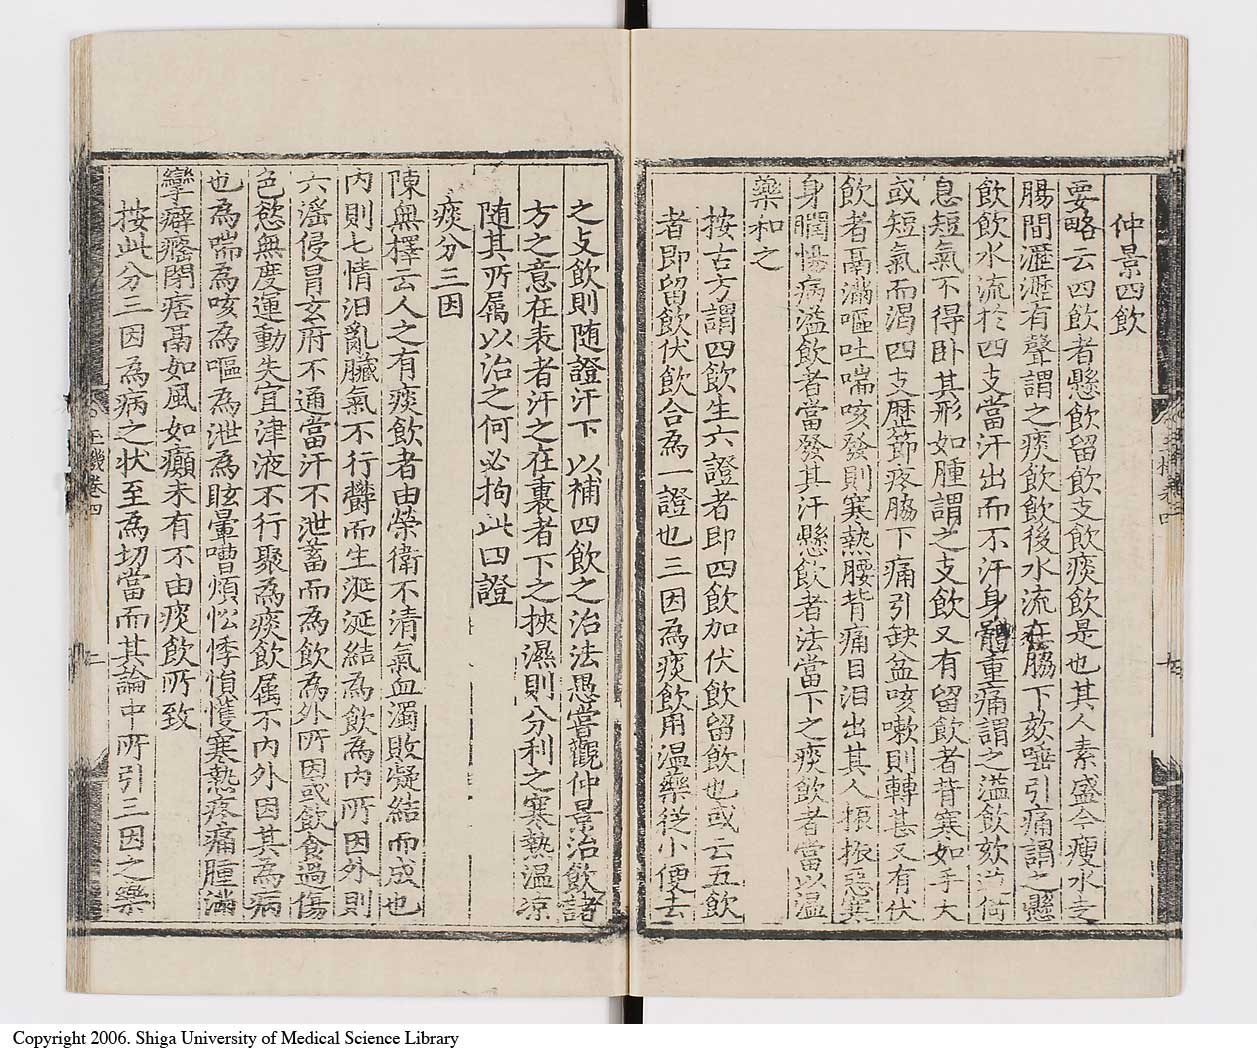 仲景四飲
要略云四飲者懸飲留飲支飲痰飲是也其人素盛今瘦水走
腸間瀝瀝有聲謂之痰飲飲後水流在脇下欬唾引痛謂之懸
飲飲水流於四支當汗出而不汗身體重痛謂之溢飲欬逆倚
息短氣不得卧其形如腫謂之支飲又有留飲者背寒如手大
或短氣而渴四支歷節疼脇下痛引缺盆咳嗽則轉甚又有伏
飲者膈滿嘔吐喘咳發則寒熱腰背痛目泪出其人振振惡寒
身瞤惕病溢飲者當發其汗懸飲者法當下之痰飲者當以溫
藥和之
按古方謂四飲生六證者即四飲加伏飲留飲也或云五飲
者即留飲伏飲合為一證也三因為痰飲用溫藥從小便去
之支飲則随證汗下以補四飲之治法愚嘗觀仲景治飲諸
方之意在表者汗之在裏者下之挾濕則分利之寒熱溫凉
随其所属以治之何必拘此四證
痰分三因
陳無擇云人之有痰飲者由榮衛不清氣血濁敗凝結而成也
內則七情汨亂臟氣不行欝而生涎涎結為飲為內所因外則
六淫侵冒玄府不通當汗不泄蓄而為飲為外所因或飲食過傷
色慾無度運動失宜津液不行聚為痰飲属不內外因其為病
也為喘為咳為嘔為泄為眩暈嘈煩忪悸慣慢寒熱疼痛腫滿
攣癖癃閉痞膈如風如癲未有不由痰飲所致
按此分三因為病之状至為切當而其論中所引三因之藥
玉機卷四
二
Copyright 2006. Shiga University of Medical Science Library